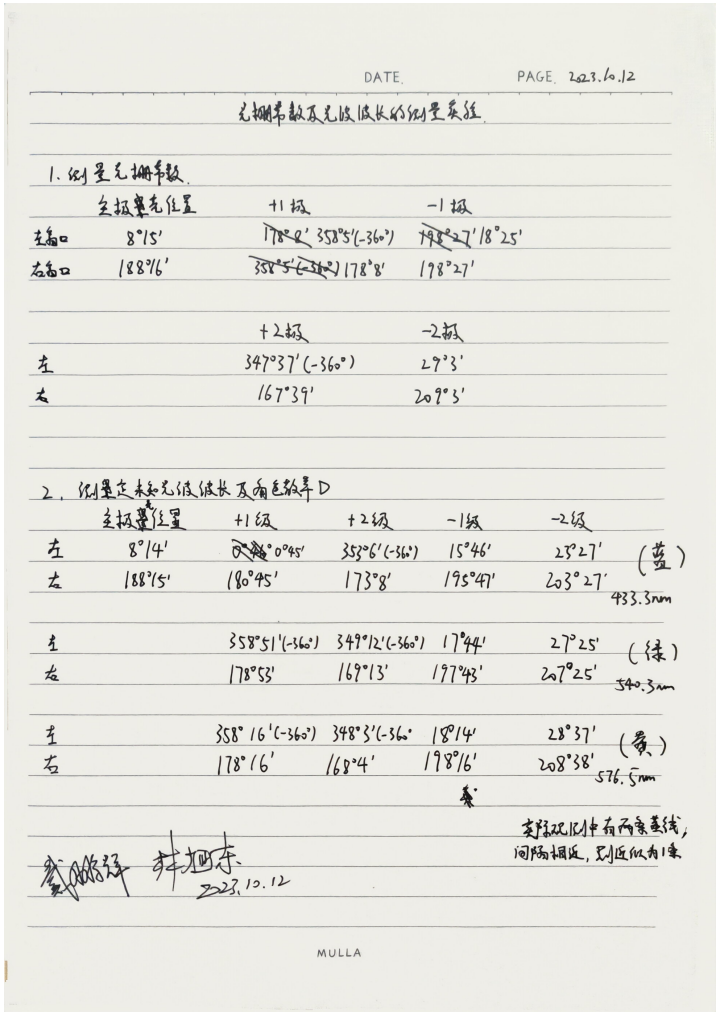 DATE. PAGE. 2023.10.12
光栅常数及光波波长的测量实验.
1. 测量光栅常数.
主极亮位置 +1极 -1极
左窗口 8°15' 178°8' 358°5'(-360°) 198°27' 18°25'
右窗口 188°16' 358°5'(-360°) 178°8' 198°27'
+2极 -2极
左 347°37'(-360°) 29°3'
右 167°39' 209°3'
2. 测量定未知光波波长及角色散率D
主极亮位置 +1级 +2级 -1级 -2级
左 8°14' 0°45' 353°6'(-360°) 15°46' 23°27' (蓝)
右 188°15' 180°45' 173°8' 195°47' 203°27'
433.3nm
左 358°51'(-360°) 349°12'(-360°) 17°44' 27°25' (绿)
右 178°53' 169°13' 197°43' 207°25'
540.3nm
左 358°16'(-360°) 348°3'(-360° 18°14' 28°37' (黄)
右 178°16' 168°4' 198°16' 208°38'
576.5nm
实际观测中有两条黄线,
间隔相近, 则近似为1条
2023.10.12
MULLA